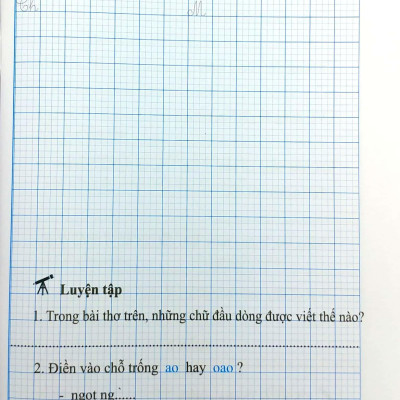 Ch M
Luyện tập
1. Trong bài thơ trên, những chữ đầu dòng được viết thế nào?
2. Điền vào chỗ trống ao hay oao ?
- ngọt ng......